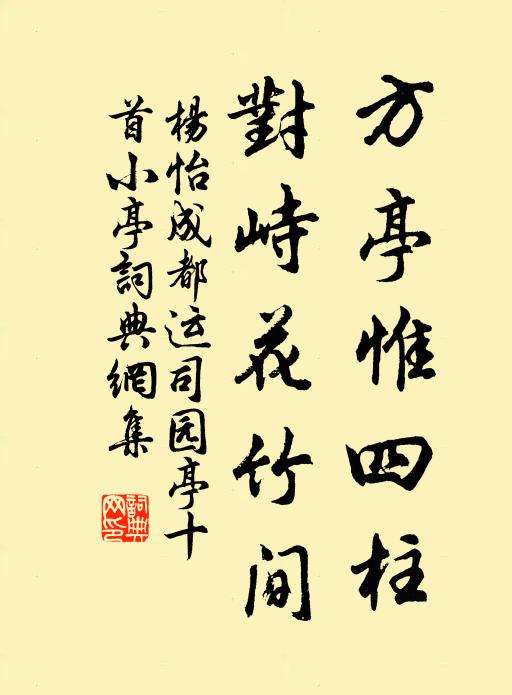 方亭惟四柱
對峙花竹间
楊怡成都运司园亭十
首小亭詞典網集
詞典
网印